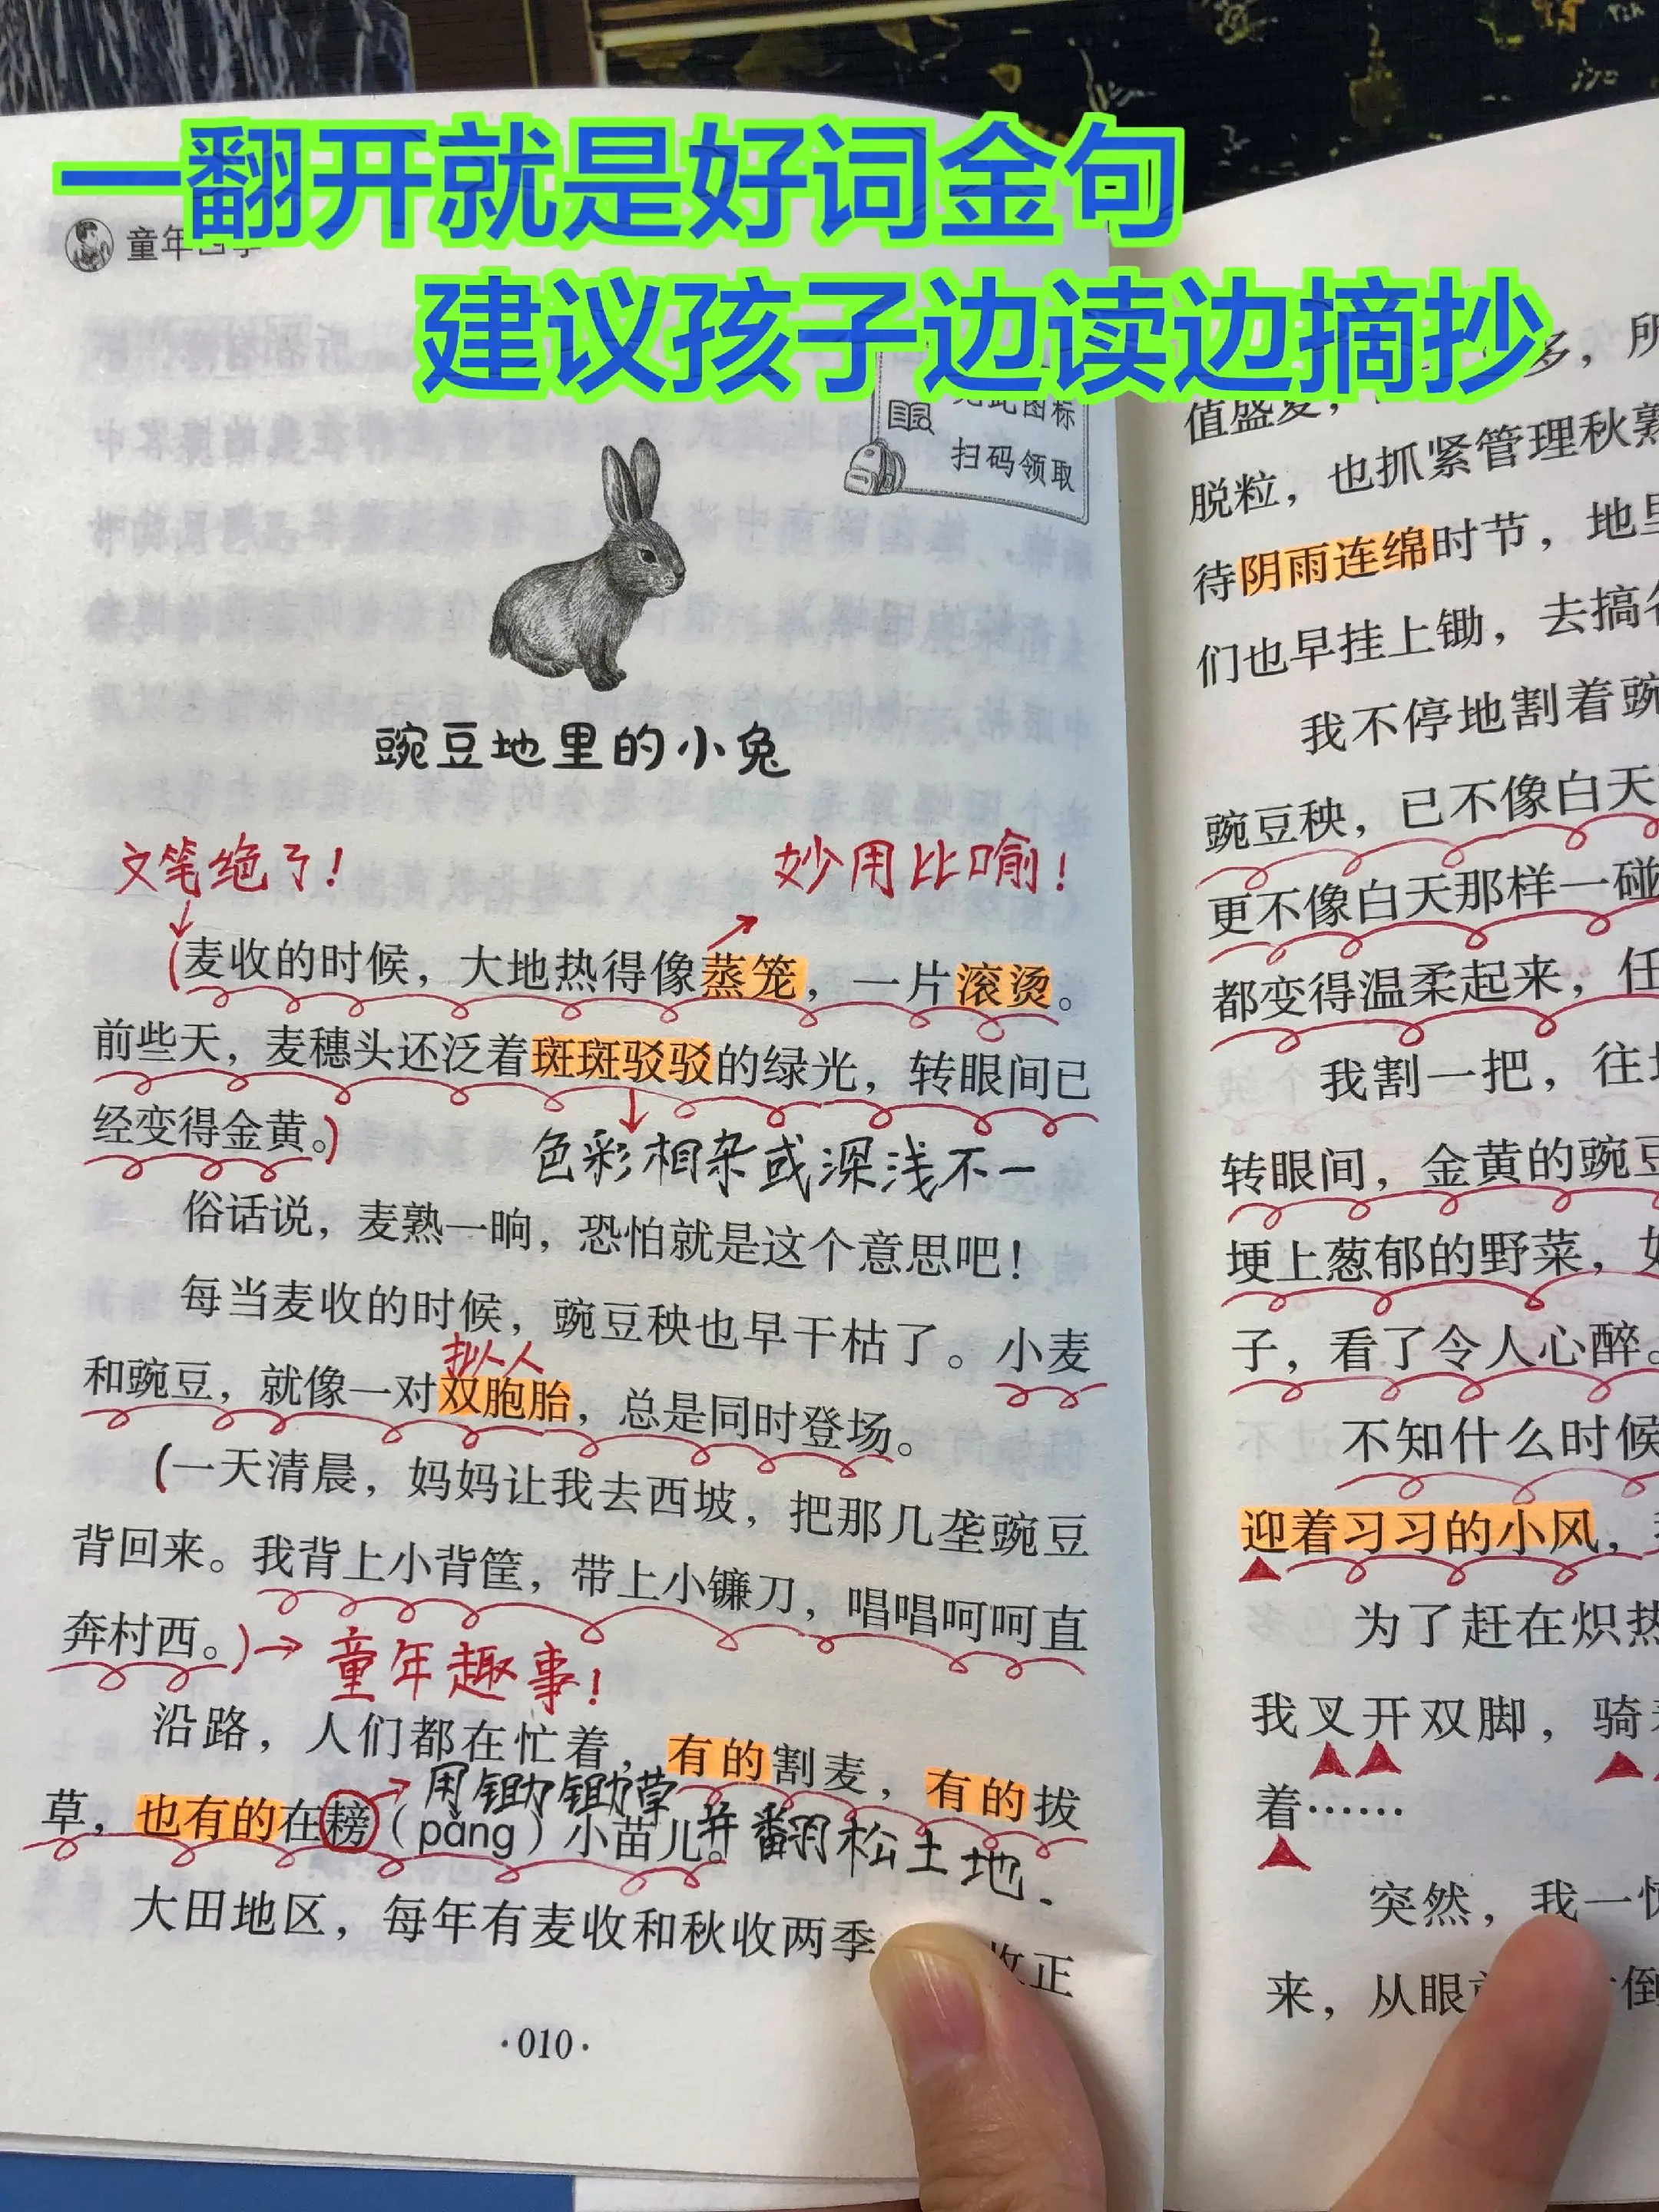 一翻开就是好词金句
建议孩子边读边摘抄
童年
扫码领取
豌豆地里的小兔
文笔绝了！
妙用比喻！
(麦收的时候，大地热得像蒸笼，一片滚烫。
前些天，麦穗头还泛着斑斑驳驳的绿光，转眼间已
经变得金黄。)
色彩相杂或深浅不一
俗话说，麦熟一晌，恐怕就是这个意思吧！
每当麦收的时候，豌豆秧也早干枯了。小麦
拟人
和豌豆，就像一对双胞胎，总是同时登场。
(一天清晨，妈妈让我去西坡，把那几垄豌豆
背回来。我背上小背筐，带上小镰刀，唱唱呵呵直
奔村西。)→童年趣事！
沿路，人们都在忙着，有的割麦，有的拔
用锄锄草
草，也有的在耪（pǎng）小苗儿。
并翻松土地.
大田地区，每年有麦收和秋收两季
收正
·010·
多，所
值盛夏，
脱粒，也抓紧管理秋熟
待阴雨连绵时节，地里
们也早挂上锄，去搞
我不停地割着豌
豌豆秧，已不像白天
更不像白天那样一碰
都变得温柔起来，任
我割一把，往
转眼间，金黄的豌豆
埂上葱郁的野菜，
子，看了令人心醉。
不知什么时候
迎着习习的小风，
为了赶在炽热
我叉开双脚，骑
着……
突然，我一
来，从眼
倒